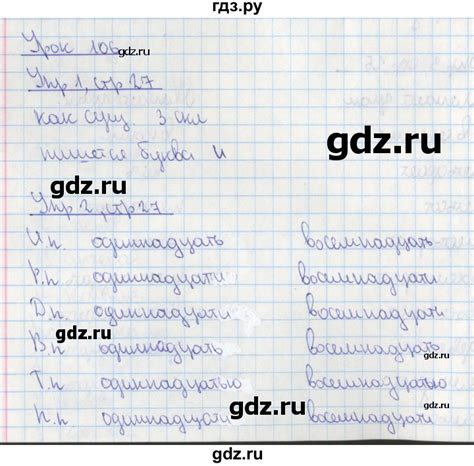 гдз.ру
Урок 106
gdz.ru
Упр 1, стр 27
gdz.ru
как сущ 3 скл
пишется буква и
gdz.ru
gdz.ru
Упр 2, стр 27
И.п. одиннадцать восемнадцать
gdz.ru
Р.п. одиннадцати восемнадцати
Д.п. одиннадцати восемнадцати
gdz.ru
В.п. одиннадцать восемнадцать
gdz.ru
Т.п. одиннадцатью восемнадцатью
gdz.ru
П.п. одиннадцати восемнадцати
gdz.ru
gdz.ru